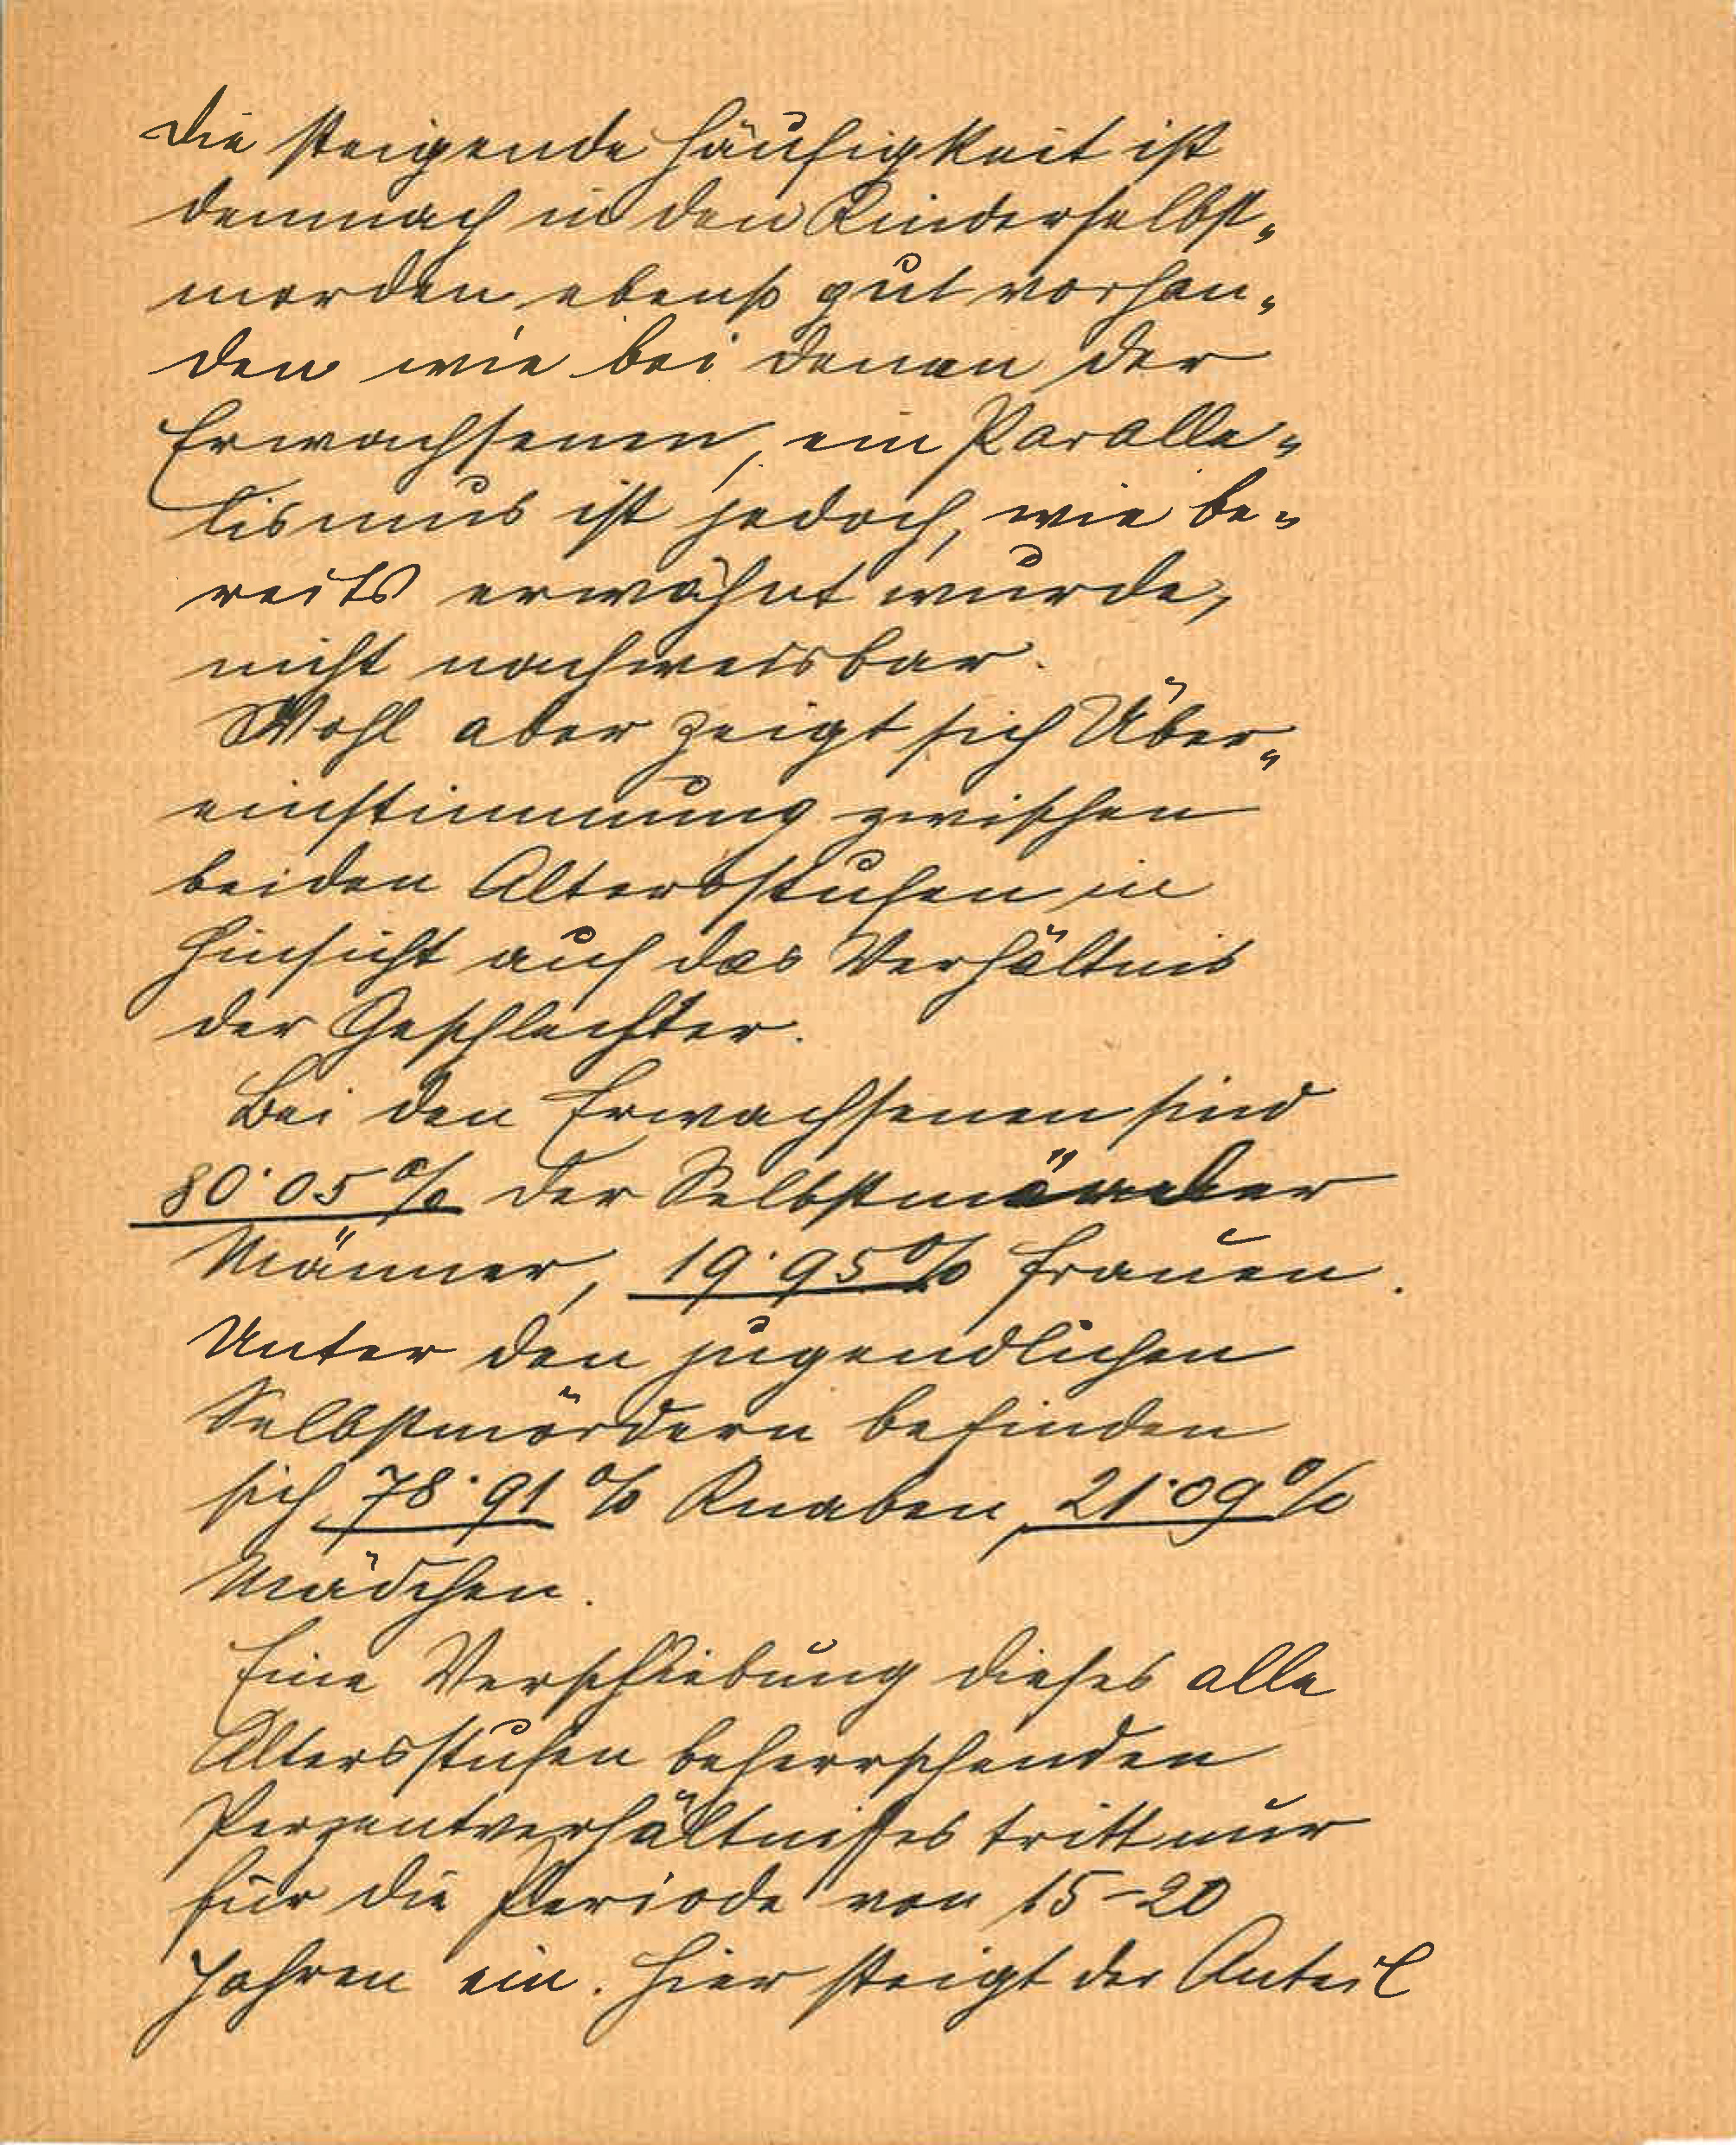 Die steigende Häufigkeit ist
demnach in den Kinderselbst„
morden ebenso gut vorhan„
den wie bei denen der
Erwachsenen, ein Paralle„
lismus ist jedoch, wie be„
reits erwähnt wurde,
nicht nachweisbar.
Wohl aber zeigt sich Über„
einstimmung zwischen
beiden Altersstufen in
Hinsicht auf das Verhältnis
der Geschlechter.
Bei den Erwachsenen sind
80·05% der Selbstmörder
Männer, 19·95% Frauen.
Unter den jugendlichen
Selbstmördern befinden
sich 78·91% Knaben, 21·09%
Mädchen.
Eine Verschiebung dieses alle
Altersstufen beherrschenden
Perzentverhältnisses tritt nur
für die Periode von 15–20
Jahren ein. Hier steigt der Anteil